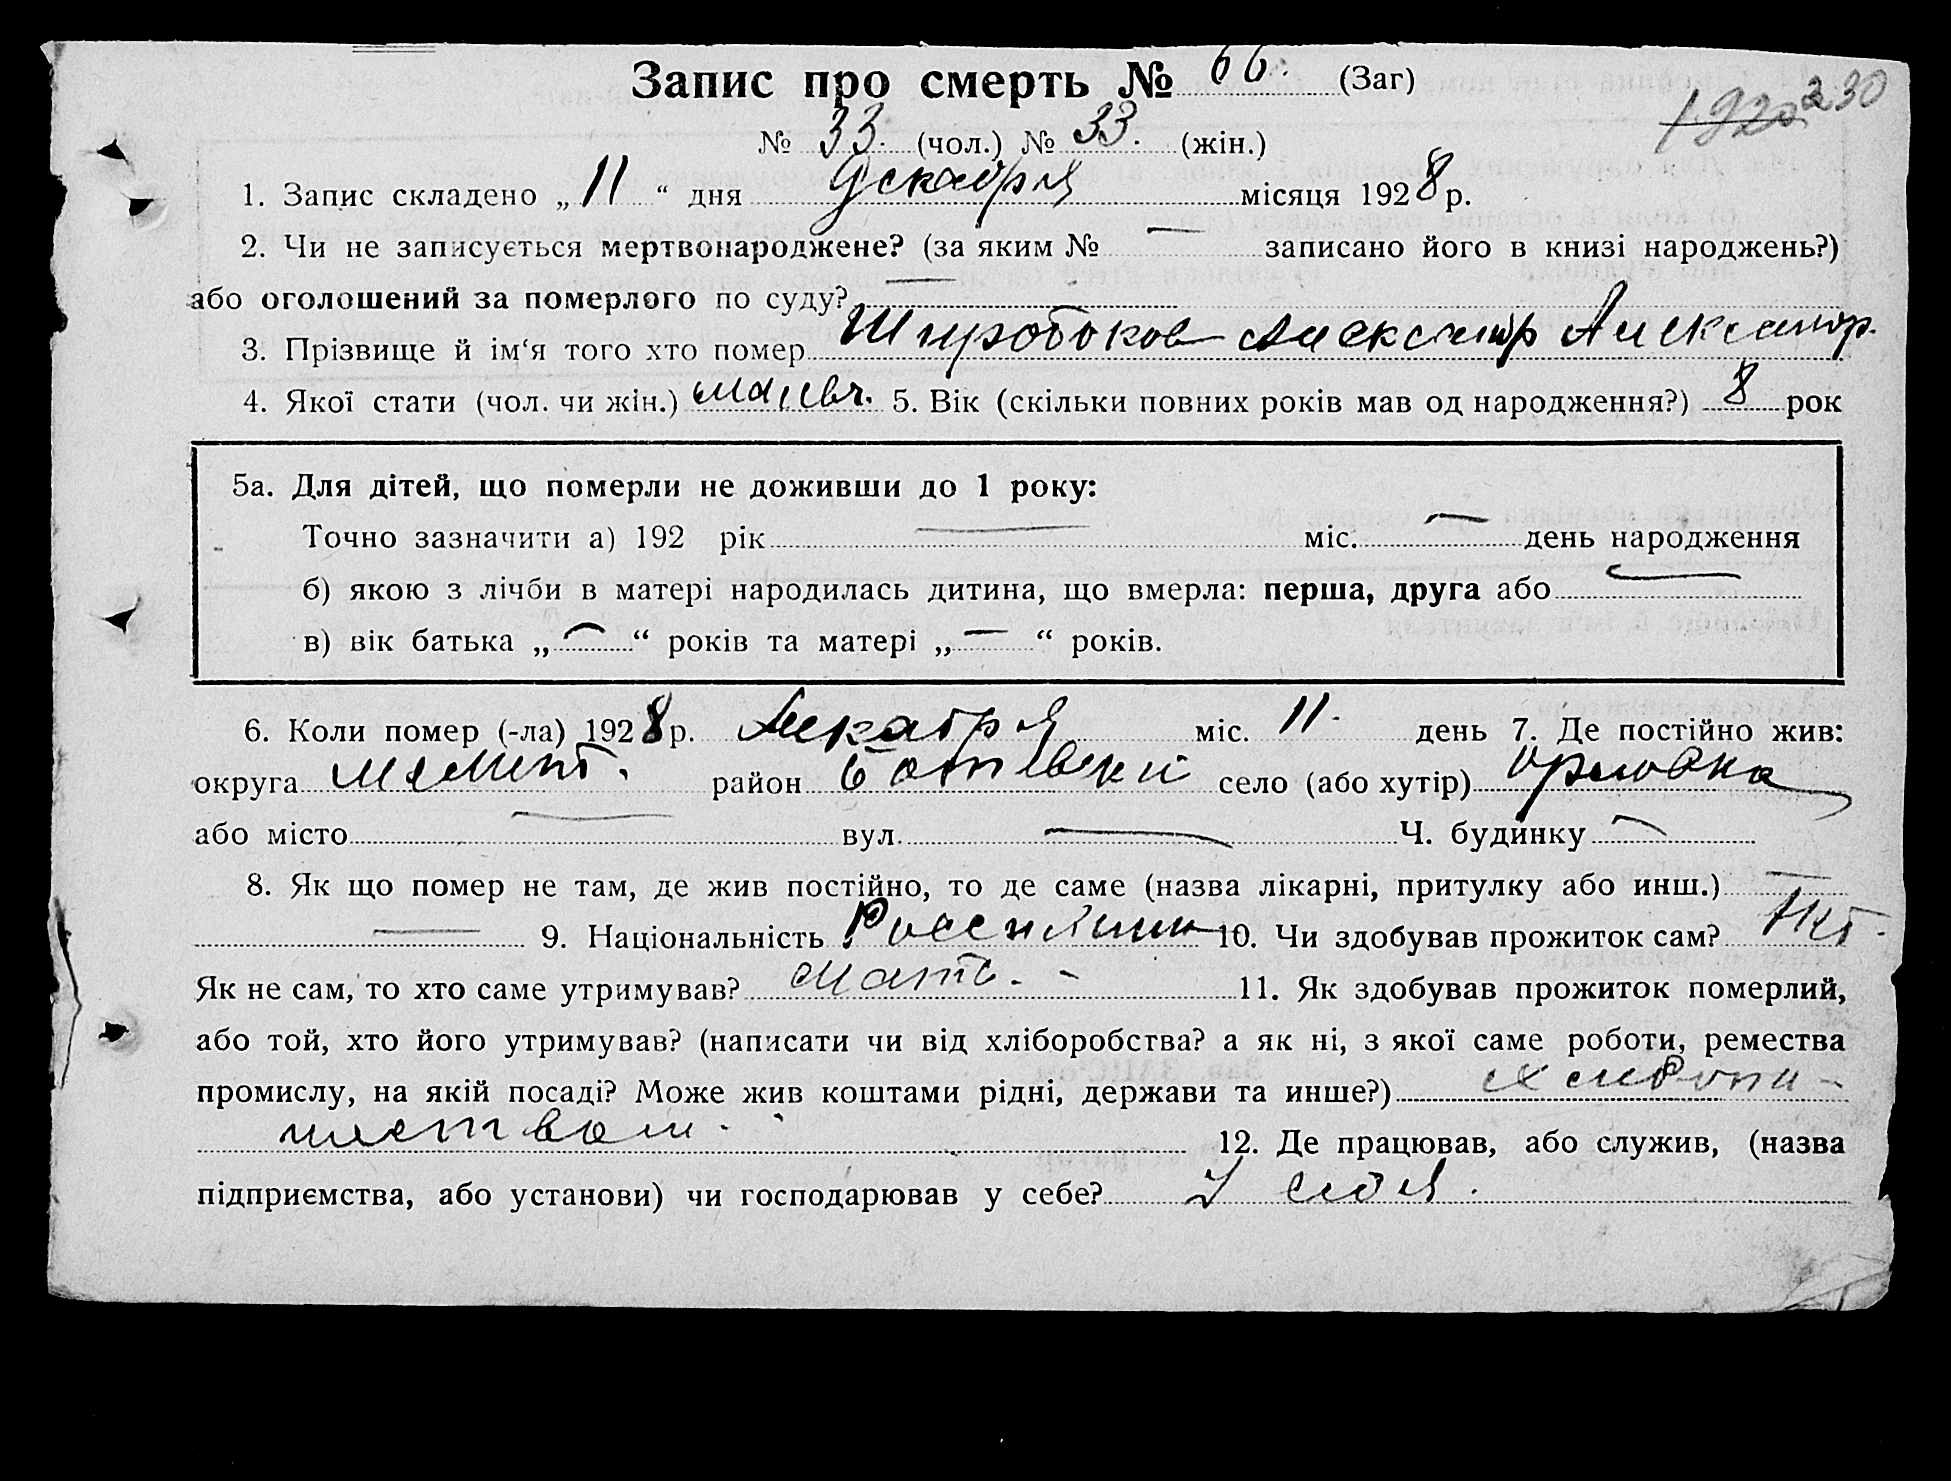 Запис про смерть № 66. (Заг)
230
№ 33. (чол.) № 33. (жін.)
1. Запис складено „ 11 “ дня Декабря місяця 1928 р.
2. Чи не записується мертвонароджене? (за яким № — записано його в книзі народжень?)
або оголошений за померлого по суду? —
3. Прізвище й ім‘я того хто помер Александр Александр.
4. Якої стати (чол. чи жін.) 5. Вік (скільки повних років мав од народження?) 8 рок
5а. Для дітей, що померли не доживши до 1 року:
Точно зазначити а) 192 рік — міс. — день народження
б) якою з лічби в матері народилась дитина, що вмерла: перша, друга або —
в) вік батька „ — “ років та матері „ — “ років.
6. Коли помер (-ла) 1928 р. Декабря міс. 11. день 7. Де постійно жив:
округа Мелитп. район Ботіевский село (або хутір) Орловка
або місто — вул. — Ч. будинку —
8. Як що помер не там, де жив постійно, то де саме (назва лікарні, притулку або инш.) —
— 9. Національність 10. Чи здобував прожиток сам? Нет.
Як не сам, то хто саме утримував? Мать. - 11. Як здобував прожиток померлий,
або той, хто його утримував? (написати чи від хліборобства? а як ні, з якої саме роботи, ремества
промислу, на якій посаді? Може жив коштами рідні, держави та инше?) хлебопа-
шеством. 12. Де працював, або служив, (назва
підприємства, або установи) чи господарював у себе? У себя.